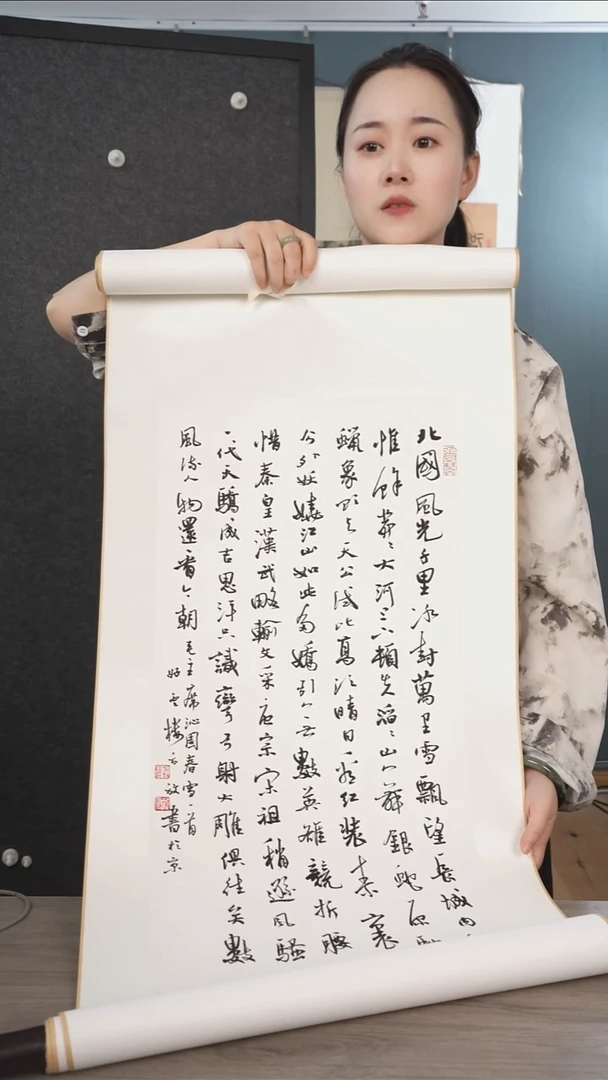 北國風光千里冰封萬里雪飄望長城內
惟餘莽〻大河上下頓失滔〻山舞銀蛇原
蠟象欲與天公試比高須晴日看紅裝素裹
分外妖嬈江山如此多嬌引無數英雄競折腰
惜秦皇漢武略輸文采唐宗宋祖稍遜風騷
一代天驕成吉思汗只識彎弓射大雕俱往矣數
風流人物還看今朝 毛主席沁園春雪一首
書於京